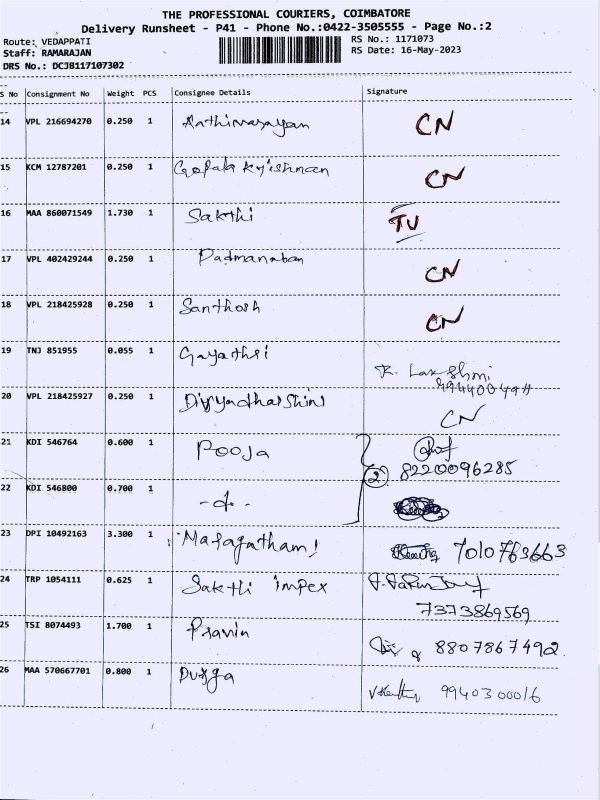 THE PROFESSIONAL COURIERS, COIMBATORE
Delivery Runsheet - P41 - Phone No.:0422-3505555 - Page No.:2
Route: VEDAPPATI RS No.: 1171073
Staff: RAMARAJAN RS Date: 16-May-2023
DRS No.: DCJB117107302
S No Consignment No Weight PCS Consignee Details Signature
14 VPL 216694270 0.250 1 CN
15 KCM 12787201 0.250 1 Gopala Krishnan CN
16 MAA 860071549 1.730 1 Sakthi TV
17 VPL 402429244 0.250 1 Padmanaban CN
18 VPL 218425928 0.250 1 Santhosh CN
19 TNJ 851955 0.055 1 Gayathri R. Lakshmi
20 VPL 218425927 0.250 1 Divyadharshini CN
21 KDI 546764 0.600 1 Pooja
2 8220096285
22 KDI 546800 0.700 1
23 DPI 10492163 3.300 1 7010763663
24 TRP 1054111 0.625 1 Sakthi impex
7373869569
25 TSI 8074493 1.700 1 Pravin 8807867492
26 MAA 570667701 0.800 1 Durga 9940300016